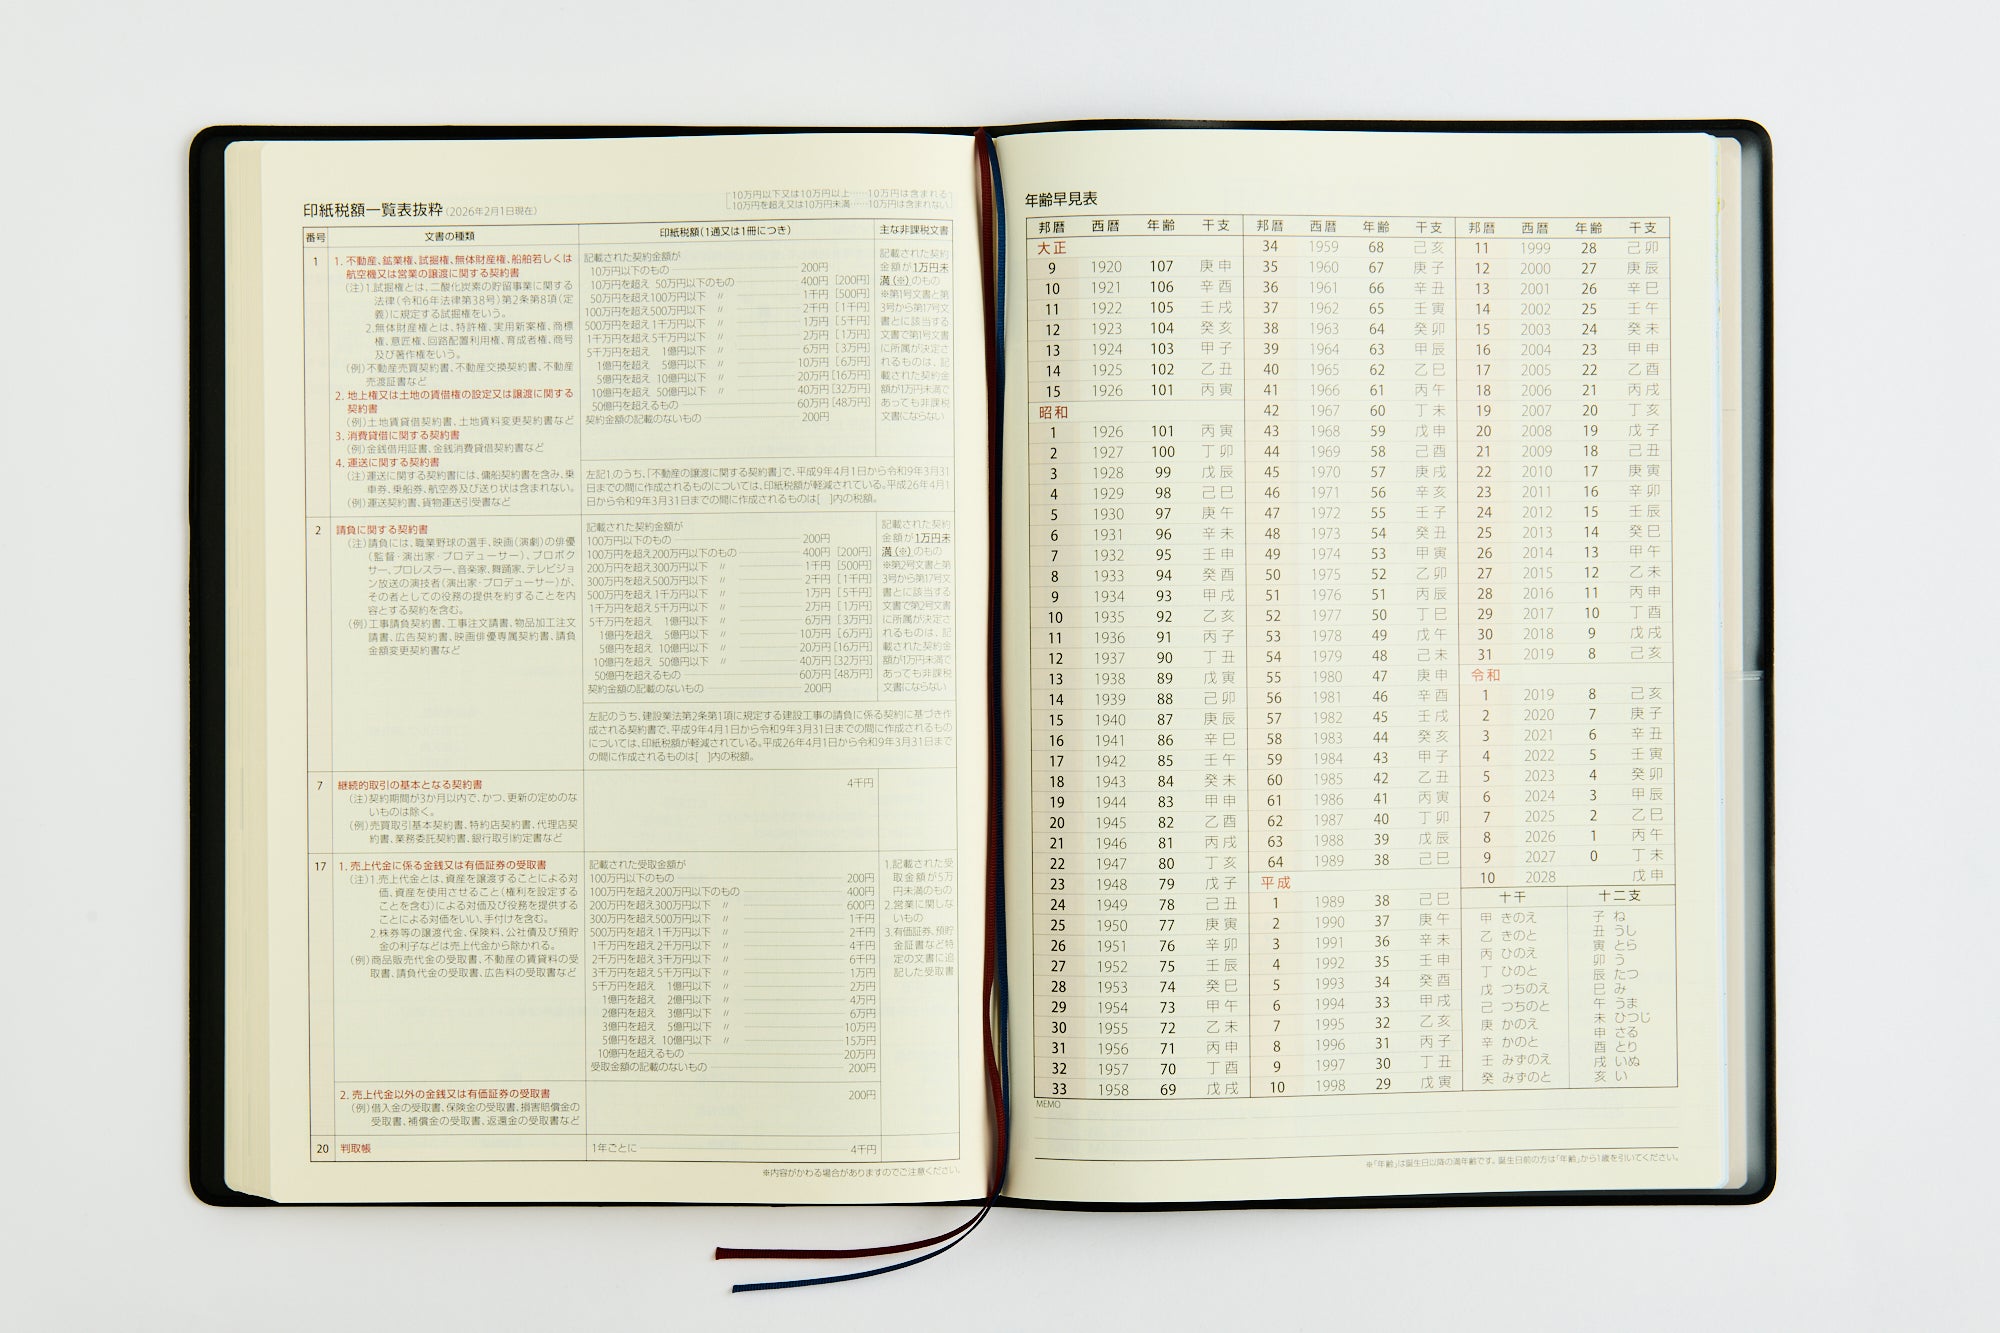 印紙税額一覧表抜粋(2026年2月1日現在)
10万円以下又は10万円以上……10万円は含まれる
10万円を超え又は10万円未満……10万円は含まれない
番号 文書の種類 印紙税額(1通又は1冊につき) 主な非課税文書
1
1. 不動産、鉱業権、試掘権、無体財産権、船舶若しくは
航空機又は営業の譲渡に関する契約書
(注)1.試掘権とは、二酸化炭素の貯留事業に関する
法律(令和6年法律第38号)第2条第8項(定
義)に規定する試掘権をいう。
2.無体財産権とは、特許権、実用新案権、商標
権、意匠権、回路配置利用権、育成者権、商号
及び著作権をいう。
(例)不動産売買契約書、不動産交換契約書、不動産
売渡証書など
2. 地上権又は土地の賃借権の設定又は譲渡に関する
契約書
(例)土地賃貸借契約書、土地賃料変更契約書など
3. 消費貸借に関する契約書
(例)金銭借用証書、金銭消費貸借契約書など
4. 運送に関する契約書
(注)運送に関する契約書には、傭船契約書を含み、乗
車券、乗船券、航空券及び送り状は含まれない。
(例)運送契約書、貨物運送引受書など
記載された契約金額が
10万円以下のもの 200円
10万円を超え 50万円以下のもの 400円 [200円]
50万円を超え100万円以下 〃 1千円 [500円]
100万円を超え500万円以下 〃 2千円 [1千円]
500万円を超え1千万円以下 〃 1万円 [5千円]
1千万円を超え5千万円以下 〃 2万円 [1万円]
5千万円を超え 1億円以下 〃 6万円 [3万円]
1億円を超え 5億円以下 〃 10万円 [6万円]
5億円を超え 10億円以下 〃 20万円 [16万円]
10億円を超え 50億円以下 〃 40万円 [32万円]
50億円を超えるもの 60万円 [48万円]
契約金額の記載のないもの 200円
左記1.のうち、「不動産の譲渡に関する契約書」で、平成9年4月1日から令和9年3月31
日までの間に作成されるものについては、印紙税額が軽減されている。平成26年4月1
日から令和9年3月31日までの間に作成されるものは[ ]内の税額。
記載された契約
金額が1万円未
満(※)のもの
※第1号文書と第
3号から第17号文
書とに該当する
文書で第1号文書
に所属が決定さ
れるものは、記
載された契約金
額が1万円未満で
あっても非課税
文書にならない
2
請負に関する契約書
(注)請負には、職業野球の選手、映画(演劇)の俳優
(監督・演出家・プロデューサー)、プロボク
サー、プロレスラー、音楽家、舞踊家、テレビジョ
ン放送の演技者(演出家・プロデューサー)が、
その者としての役務の提供を約することを内
容とする契約を含む。
(例)工事請負契約書、工事注文請書、物品加工注文
請書、広告契約書、映画俳優専属契約書、請負
金額変更契約書など
記載された契約金額が
100万円以下のもの 200円
100万円を超え200万円以下のもの 400円 [200円]
200万円を超え300万円以下 〃 1千円 [500円]
300万円を超え500万円以下 〃 2千円 [1千円]
500万円を超え1千万円以下 〃 1万円 [5千円]
1千万円を超え5千万円以下 〃 2万円 [1万円]
5千万円を超え 1億円以下 〃 6万円 [3万円]
1億円を超え 5億円以下 〃 10万円 [6万円]
5億円を超え 10億円以下 〃 20万円 [16万円]
10億円を超え 50億円以下 〃 40万円 [32万円]
50億円を超えるもの 60万円 [48万円]
契約金額の記載のないもの 200円
左記のうち、建設業法第2条第1項に規定する建設工事の請負に係る契約に基づき作
成される契約書で、平成9年4月1日から令和9年3月31日までの間に作成されるもの
については、印紙税額が軽減されている。平成26年4月1日から令和9年3月31日まで
の間に作成されるものは[ ]内の税額。
記載された契約
金額が1万円未
満(※)のもの
※第2号文書と第
3号から第17号文
書とに該当する
文書で第2号文書
に所属が決定さ
れるものは、記
載された契約金
額が1万円未満で
あっても非課税
文書にならない
7
継続的取引の基本となる契約書
(注)契約期間が3か月以内で、かつ、更新の定めのな
いものは除く。
(例)売買取引基本契約書、特約店契約書、代理店契
約書、業務委託契約書、銀行取引約定書など
4千円
17
1. 売上代金に係る金銭又は有価証券の受取書
(注)1.売上代金とは、資産を譲渡することによる対
価、資産を使用させること(権利を設定する
ことを含む)による対価及び役務を提供する
ことによる対価をいい、手付けを含む。
2.株券等の譲渡代金、保険料、公社債及び預貯
金の利子などは売上代金から除かれる。
(例)商品販売代金の受取書、不動産の賃貸料の受
取書、請負代金の受取書、広告料の受取書など
記載された受取金額が
100万円以下のもの 200円
100万円を超え200万円以下のもの 400円
200万円を超え300万円以下 〃 600円
300万円を超え500万円以下 〃 1千円
500万円を超え1千万円以下 〃 2千円
1千万円を超え2千万円以下 〃 4千円
2千万円を超え3千万円以下 〃 6千円
3千万円を超え5千万円以下 〃 1万円
5千万円を超え 1億円以下 〃 2万円
1億円を超え 2億円以下 〃 4万円
2億円を超え 3億円以下 〃 6万円
3億円を超え 5億円以下 〃 10万円
5億円を超え 10億円以下 〃 15万円
10億円を超えるもの 20万円
受取金額の記載のないもの 200円
1.記載された受
取金額が5万
円未満のもの
2.営業に関しな
いもの
3.有価証券、預貯
金証書など特
定の文書に追
記した受取書
2. 売上代金以外の金銭又は有価証券の受取書
(例)借入金の受取書、保険金の受取書、損害賠償金の
受取書、補償金の受取書、返還金の受取書など
200円
20 判取帳 1年ごとに 4千円
※内容がかわる場合がありますのでご注意ください。
年齢早見表
邦暦 西暦 年齢 干支
大正
9 1920 107 庚申
10 1921 106 辛酉
11 1922 105 壬戌
12 1923 104 癸亥
13 1924 103 甲子
14 1925 102 乙丑
15 1926 101 丙寅
昭和
1 1926 101 丙寅
2 1927 100 丁卯
3 1928 99 戊辰
4 1929 98 己巳
5 1930 97 庚午
6 1931 96 辛未
7 1932 95 壬申
8 1933 94 癸酉
9 1934 93 甲戌
10 1935 92 乙亥
11 1936 91 丙子
12 1937 90 丁丑
13 1938 89 戊寅
14 1939 88 己卯
15 1940 87 庚辰
16 1941 86 辛巳
17 1942 85 壬午
18 1943 84 癸未
19 1944 83 甲申
20 1945 82 乙酉
21 1946 81 丙戌
22 1947 80 丁亥
23 1948 79 戊子
24 1949 78 己丑
25 1950 77 庚寅
26 1951 76 辛卯
27 1952 75 壬辰
28 1953 74 癸巳
29 1954 73 甲午
30 1955 72 乙未
31 1956 71 丙申
32 1957 70 丁酉
33 1958 69 戊戌
邦暦 西暦 年齢 干支
34 1959 68 己亥
35 1960 67 庚子
36 1961 66 辛丑
37 1962 65 壬寅
38 1963 64 癸卯
39 1964 63 甲辰
40 1965 62 乙巳
41 1966 61 丙午
42 1967 60 丁未
43 1968 59 戊申
44 1969 58 己酉
45 1970 57 庚戌
46 1971 56 辛亥
47 1972 55 壬子
48 1973 54 癸丑
49 1974 53 甲寅
50 1975 52 乙卯
51 1976 51 丙辰
52 1977 50 丁巳
53 1978 49 戊午
54 1979 48 己未
55 1980 47 庚申
56 1981 46 辛酉
57 1982 45 壬戌
58 1983 44 癸亥
59 1984 43 甲子
60 1985 42 乙丑
61 1986 41 丙寅
62 1987 40 丁卯
63 1988 39 戊辰
64 1989 38 己巳
平成
1 1989 38 己巳
2 1990 37 庚午
3 1991 36 辛未
4 1992 35 壬申
5 1993 34 癸酉
6 1994 33 甲戌
7 1995 32 乙亥
8 1996 31 丙子
9 1997 30 丁丑
10 1998 29 戊寅
邦暦 西暦 年齢 干支
11 1999 28 己卯
12 2000 27 庚辰
13 2001 26 辛巳
14 2002 25 壬午
15 2003 24 癸未
16 2004 23 甲申
17 2005 22 乙酉
18 2006 21 丙戌
19 2007 20 丁亥
20 2008 19 戊子
21 2009 18 己丑
22 2010 17 庚寅
23 2011 16 辛卯
24 2012 15 壬辰
25 2013 14 癸巳
26 2014 13 甲午
27 2015 12 乙未
28 2016 11 丙申
29 2017 10 丁酉
30 2018 9 戊戌
31 2019 8 己亥
令和
1 2019 8 己亥
2 2020 7 庚子
3 2021 6 辛丑
4 2022 5 壬寅
5 2023 4 癸卯
6 2024 3 甲辰
7 2025 2 乙巳
8 2026 1 丙午
9 2027 0 丁未
10 2028 戊申
十干
甲 きのえ
乙 きのと
丙 ひのえ
丁 ひのと
戊 つちのえ
己 つちのと
庚 かのえ
辛 かのと
壬 みずのえ
癸 みずのと
十二支
子 ね
丑 うし
寅 とら
卯 う
辰 たつ
巳 み
午 うま
未 ひつじ
申 さる
酉 とり
戌 いぬ
亥 い
MEMO
※「年齢」は誕生日以降の満年齢です。誕生日前の方は「年齢」から1歳を引いてください。